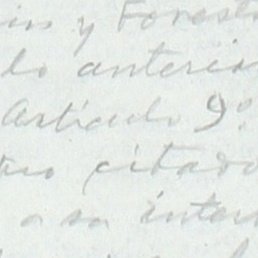 y Forest
lo anterio
Artículo 9º
citado
a su inter